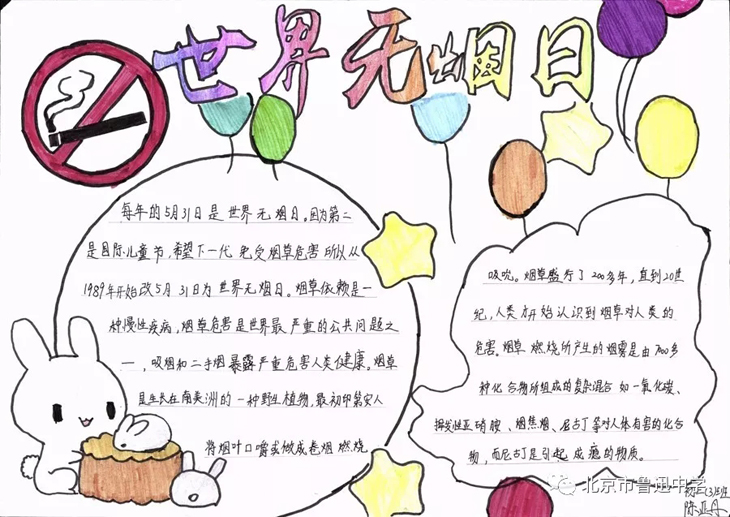 世界无烟日
每年的5月31日是世界无烟日。因为第二
是国际儿童节,希望下一代免受烟草危害所以从
1989年开始改5月31日为世界无烟日。烟草依赖是一
种慢性疾病,烟草危害是世界最严重的公共问题之
一,吸烟和二手烟暴露严重危害人类健康。烟草
是生长在南美洲的一种野生植物,最初印第安人
将烟叶口嚼或做成卷烟燃烧
吸吹。烟草盛行了200多年,直到20世
纪,人类才开始认识到烟草对人类的
危害。烟草燃烧所产生的烟雾是由7000多
种化合物所组成的复杂混合如一氧化碳、
挥发性亚硝胺、烟焦烟、尼古丁等对人体有害的化合
物,而尼古丁是引起成瘾的物质。
北京市鲁迅中学